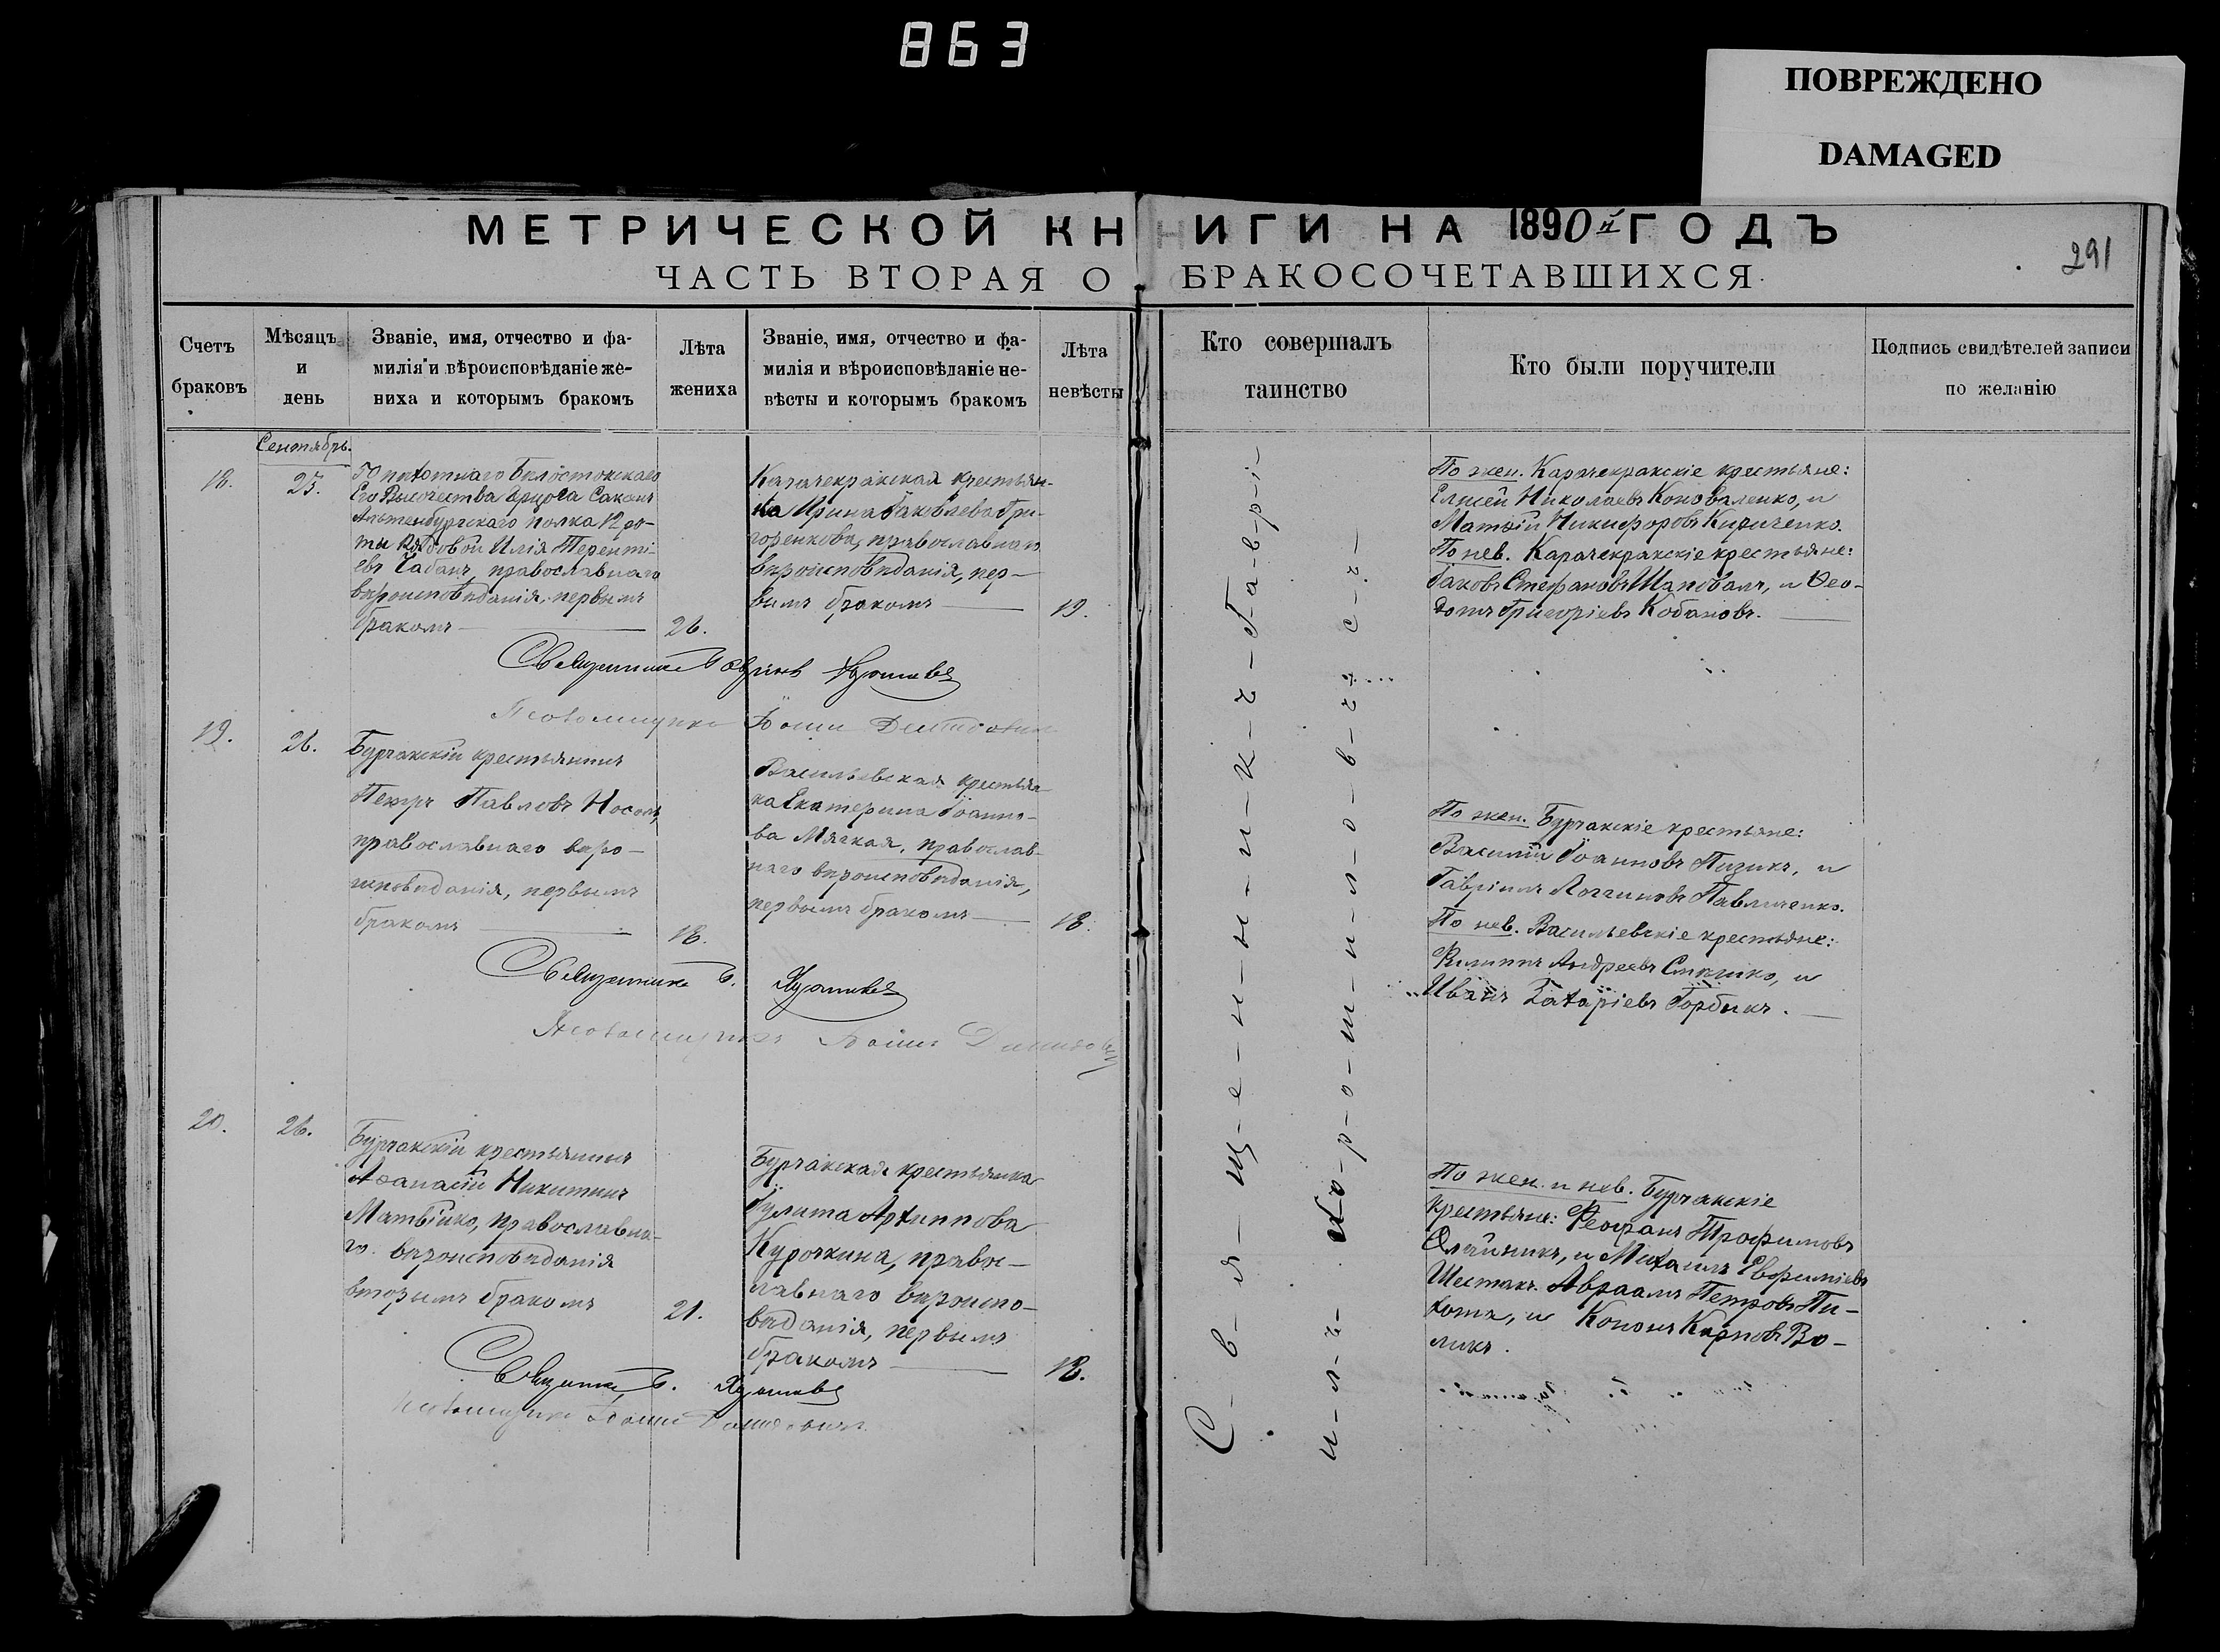 863
ПОВРЕЖДЕНО
DAMAGED
МЕТРИЧЕСКОЙ КНИГИ НА 1890й ГОДЪ
ЧАСТЬ ВТОРАЯ О БРАКОСОЧЕТАВШИХСЯ.
291
Счетъ
браковъ
Мѣсяцъ
и
день
Званіе, имя, отчество и фа-
милія и вѣроисповѣданіе же-
ниха и которымъ бракомъ
Лѣта
жениха
Званіе, имя, отчество и фа-
милія и вѣроисповѣданіе не-
вѣсты и которымъ бракомъ
Лѣта
невѣсты
Кто совершалъ
таинство
Кто были поручители
Подпись свидѣтелей записи
по желанію
Сентябрь.
18.
25.
пѣхотнаго Бѣлостокскаго
Его Высочества Герцога Саксенъ
Альтенбургскаго полка 12 ро-
ты Рядовой Илія Теренті-
евъ Чабанъ, православнаго
вѣроисповѣданія, первымъ
бракомъ
26.
Карачекракская крестьян-
ка Ирина Іаковлева Гри-
горенкова, православнаго
вѣроисповѣданія, пер-
вымъ бракомъ
19.
По жен. Карачекракскіе крестьяне:
Елисей Николаевъ Коноваленко, и
Матѳій Никифоровъ Кириченко.
По нев. Карачекракскіе крестьяне:
Іаковъ Стефановъ Шаповалъ, и Ѳео-
дотъ Григоріевъ Кобановъ.
Священникъ Гавріилъ
Псаломщикъ Іоаннъ
19.
26.
Бурчакскій крестьянинъ
Петръ Павловъ Носолъ,
православнаго вѣро-
исповѣданія, первымъ
бракомъ
18.
Васильевская крестьян-
ка Екатерина Іоанно-
ва Мягкая, православ-
наго вѣроисповѣданія,
первымъ бракомъ
18.
По жен. Бурчакскіе крестьяне:
Василій Іоанновъ Пизикъ, и
Гавріилъ Логгиновъ Павличенко.
По нев. Васильевскіе крестьяне:
Филиппъ Андреевъ и
Иванъ Захаріевъ Горбикъ.
Священникъ Г.
Псаломщикъ Іоаннъ
20.
26.
Бурчакскій крестьянинъ
Аѳанасій Никитинъ
Матвійко, православна-
го вѣроисповѣданія
вторымъ бракомъ
21.
Бурчакская крестьянка
Іулита Архиппова
Курочкина, право-
славнаго вѣроиспо-
вѣданія, первымъ
бракомъ
18.
По жен. и нев. Бурчакскіе
крестьяне: Ѳеофанъ Трофимовъ
Олейникъ, и Михаилъ Евфиміевъ
Шестакъ. Авраамъ Петровъ Пи-
хота, и Кононъ Карповъ Во-
ликъ.
Священникъ Г.
Псаломщикъ Іоаннъ
С-в-я-щ-е-н-н-и-к-ъ-Г-а-в-р-і-
и-л-ъ-